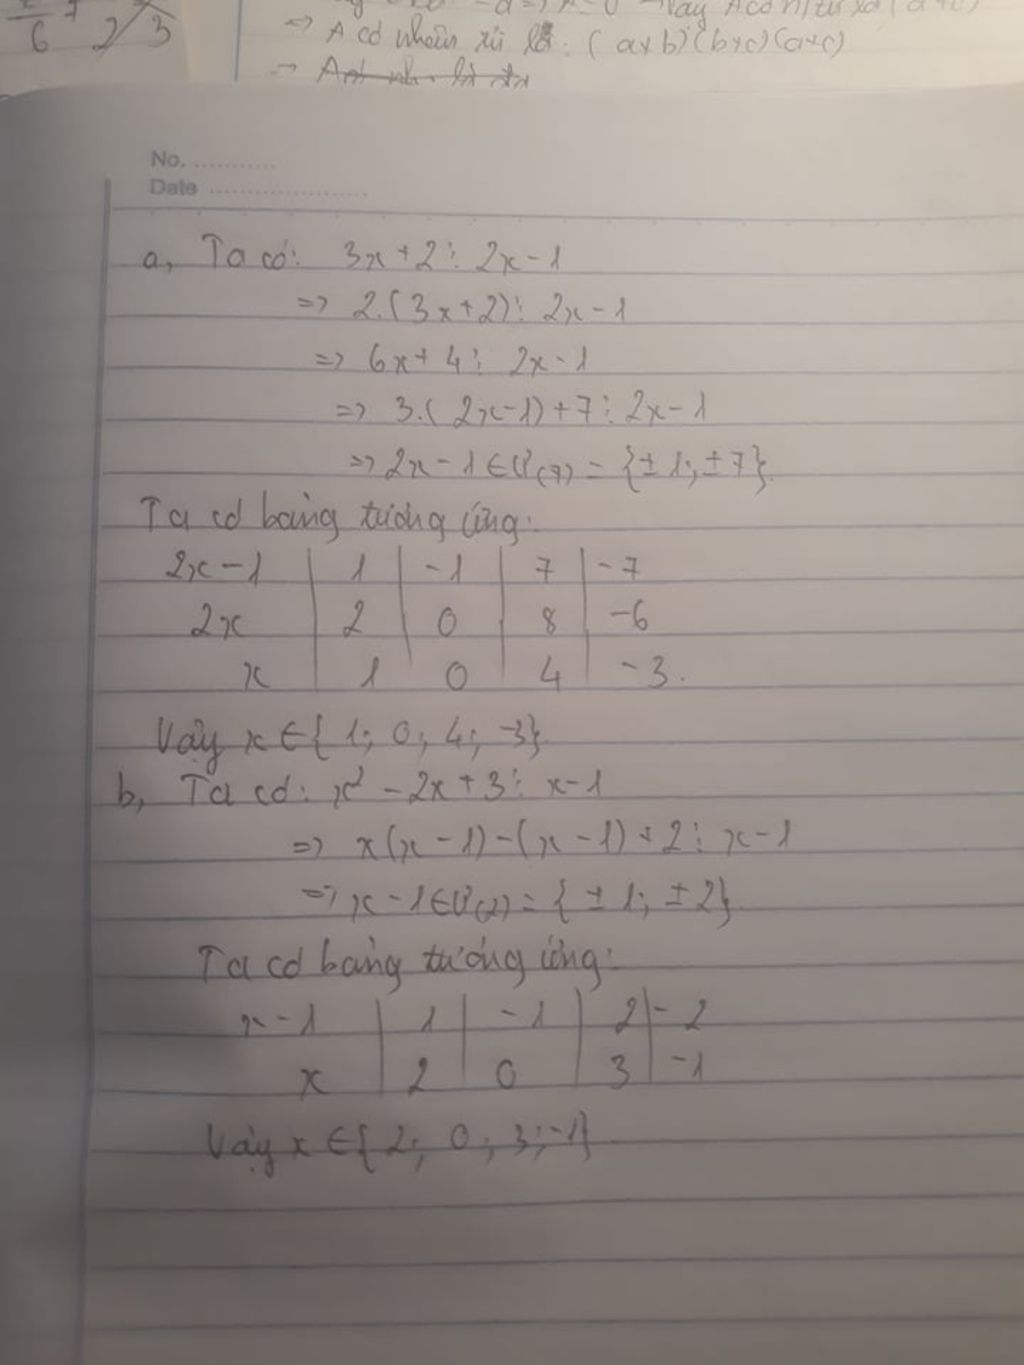 6 2 3
⇒ A có nhân tử là: (a+b)(b+c)(a+c)
No. ...........
Date ......................
a, Ta có: 3x+2 ⋮ 2x-1
=> 2.(3x+2) ⋮ 2x-1
=> 6x+4 ⋮ 2x-1
=> 3.(2x-1)+7 ⋮ 2x-1
=> 2x-1 ∈ Ư(7) = {±1; ±7}.
Ta có bảng tương ứng:
2x-1 | 1 | -1 | 7 | -7
2x | 2 | 0 | 8 | -6
x | 1 | 0 | 4 | -3.
Vậy x ∈ {1; 0; 4; -3}.
b, Ta có: x² - 2x + 3 ⋮ x-1
=> x(x-1)-(x-1)+2 ⋮ x-1
=> x-1 ∈ Ư(2) = {±1; ±2}.
Ta có bảng tương ứng:
x-1 | 1 | -1 | 2 | -2
x | 2 | 0 | 3 | -1
Vậy x ∈ {2; 0; 3; -1}